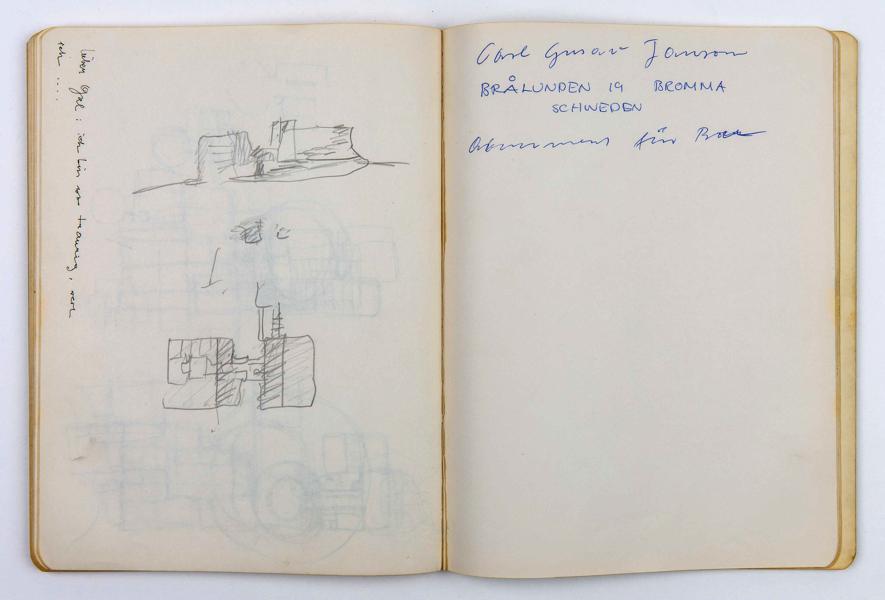 Lieber Gel : ich bin so traurig, weil
ich ....
Carl Gustav Jonson
BRÅLUNDEN 19 BROMMA
SCHWEDEN
für